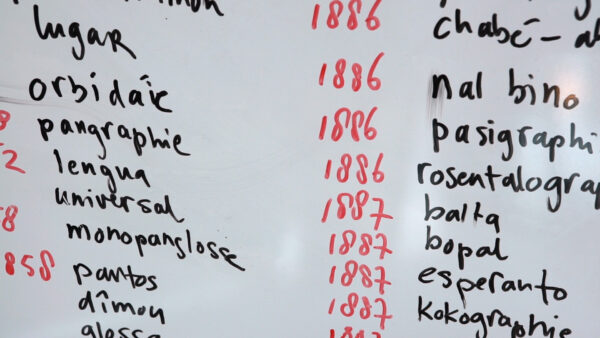 lugar
orbidáïe
pangraphie
lengua
universal
monopanglosse
858 pantos
dîmou
glossa
1886 chabé-a
1886 nal bino
1886 pasigraphi
1886 rosentalograp
1887 balta
1887 bopal
1887 esperanto
1887 kokographie